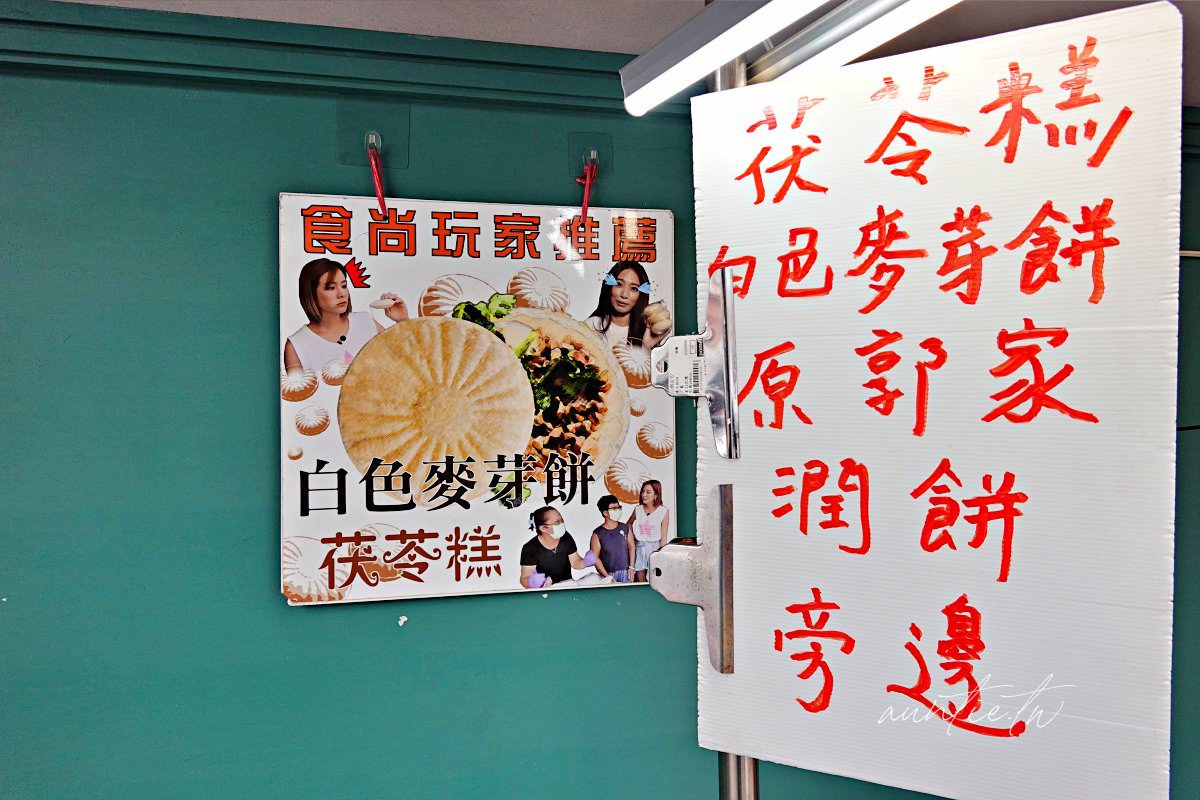 食尚玩家推薦
白色麥芽餅
茯苓糕
茯苓糕
白色麥芽餅
原郭家
潤餅
旁邊
auntie.tw